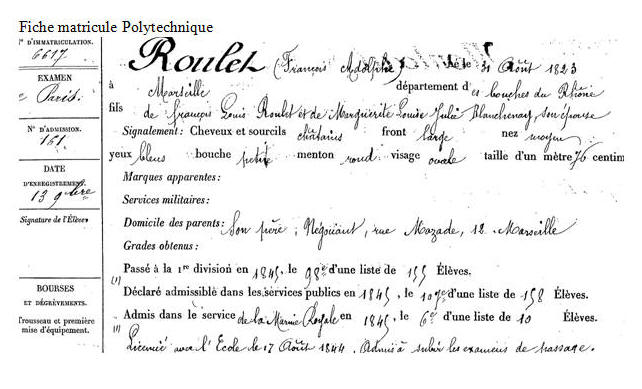 Fiche matricule Polytechnique
N° D'IMMATRICULATION.
6617
EXAMEN
Paris.
N° D'ADMISSION.
161.
DATE
D'ENREGISTREMENT
13 9bre
Signature de l'Élève
BOURSES
ET DÉGRÈVEMENTS.
Trousseau et première
mise d'équipement.
Roulet (François Adolphe) Né le 31 Août 1823
à Marseille département des Bouches du Rhône
fils de François Louis Roulet et de Marguerite Louise Julie Blanchenay, son épouse
Signalement: Cheveux et sourcils châtains front large nez moyen
yeux bleus bouche petite menton rond visage ovale taille d'un mètre 76 centim
Marques apparentes:
Services militaires:
Domicile des parents: Son père, Négociant, rue Mazade, 12. Marseille
Grades obtenus:
Passé à la 1re division en 1845, le 98e d'une liste de 155 Élèves.
(1)
Déclaré admissible dans les services publics en 1845, le 107e d'une liste de 158 Élèves.
Admis dans le service de la Marine Royale en 1845, le 6e d'une liste de 10 Élèves.
(1) Licencié avec l'Ecole le 17 Août 1844. Admis à subir les examens de passage.